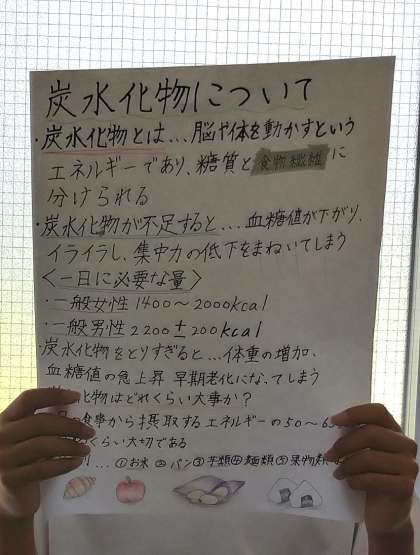 炭水化物について
・炭水化物とは…脳や体を動かすという
エネルギーであり、糖質と食物繊維に
分けられる
・炭水化物が不足すると…血糖値が下がり、
イライラし、集中力の低下をまねいてしまう
〈一日に必要な量〉
・一般女性 1400〜2000kcal
・一般男性 2200±200kcal
・炭水化物をとりすぎると…体重の増加、
血糖値の急上昇 早期老化になってしまう
化物はどれくらい大事か?
食事から摂取するエネルギーの50〜6
くらい大切である
…①お米 ②パン③芋類④麺類⑤果物類